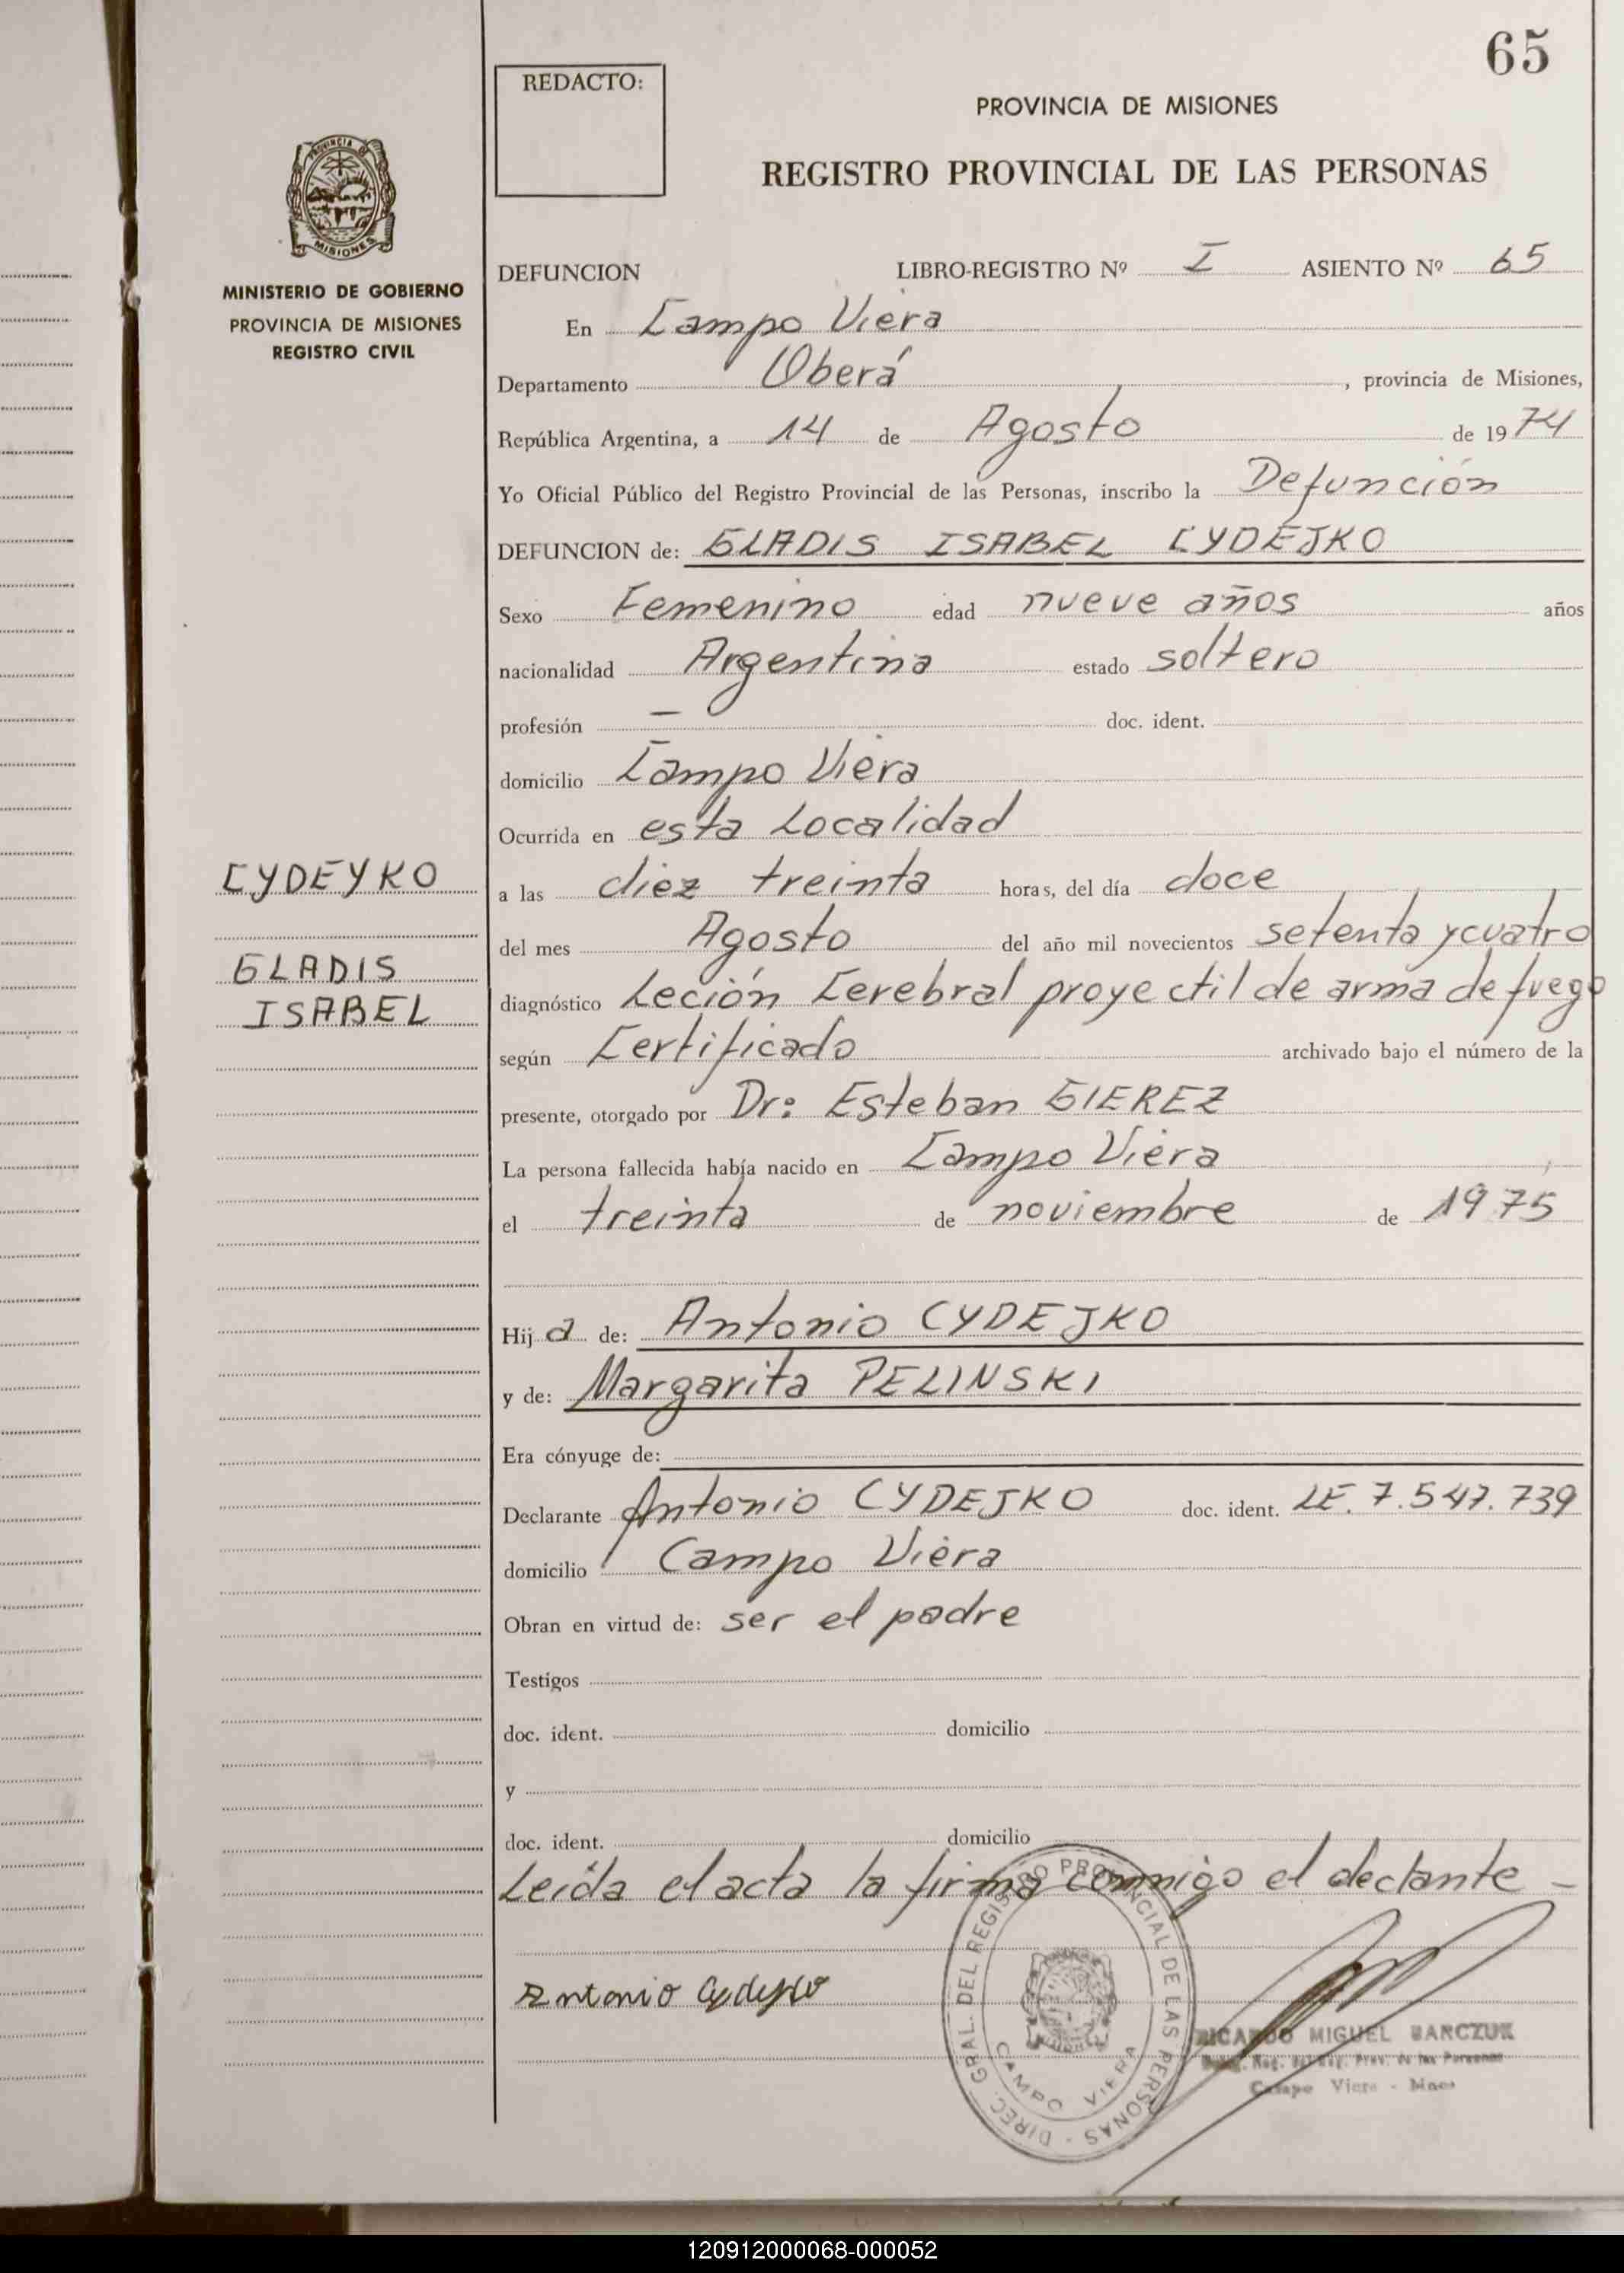 65
REDACTO:
PROVINCIA DE MISIONES
REGISTRO PROVINCIAL DE LAS PERSONAS
PROVINCIA DE
MISIONES
MINISTERIO DE GOBIERNO
PROVINCIA DE MISIONES
REGISTRO CIVIL
DEFUNCION LIBRO-REGISTRO Nº I ASIENTO Nº 65
En Campo Viera
Departamento Oberá, provincia de Misiones,
República Argentina, a 14 de Agosto de 1974
Yo Oficial Público del Registro Provincial de las Personas, inscribo la Defunción
DEFUNCION de: GLADIS ISABEL CYDEJKO
Sexo Femenino edad nueve años años
nacionalidad Argentina estado soltero
profesión — doc. ident.
domicilio Campo Viera
Ocurrida en esta Localidad
CYDEYKO
GLADIS
ISABEL
a las diez treinta horas, del día doce
del mes Agosto del año mil novecientos setenta y cuatro
diagnóstico Leción Cerebral proyectil de arma de fuego
según Certificado archivado bajo el número de la
presente, otorgado por Dr: Esteban GIEREZ
La persona fallecida había nacido en Campo Viera
el treinta de noviembre de 1975
Hija de: Antonio CYDEJKO
y de: Margarita PELINSKI
Era cónyuge de:
Declarante Antonio CYDEJKO doc. ident. LE. 7.547.739
domicilio Campo Viera
Obran en virtud de: ser el padre
Testigos
doc. ident. domicilio
y
doc. ident. domicilio
Leída el acta la firma conmigo el declante —
Antonio Cydejko
DIREC. GRAL. DEL REGISTRO PROVINCIAL DE LAS PERSONAS -
CAMPO VIERA
RICARDO MIGUEL BARCZUK
Reg. Prov. de las Personas
Campo Viera - Mnes
120912000068-000052